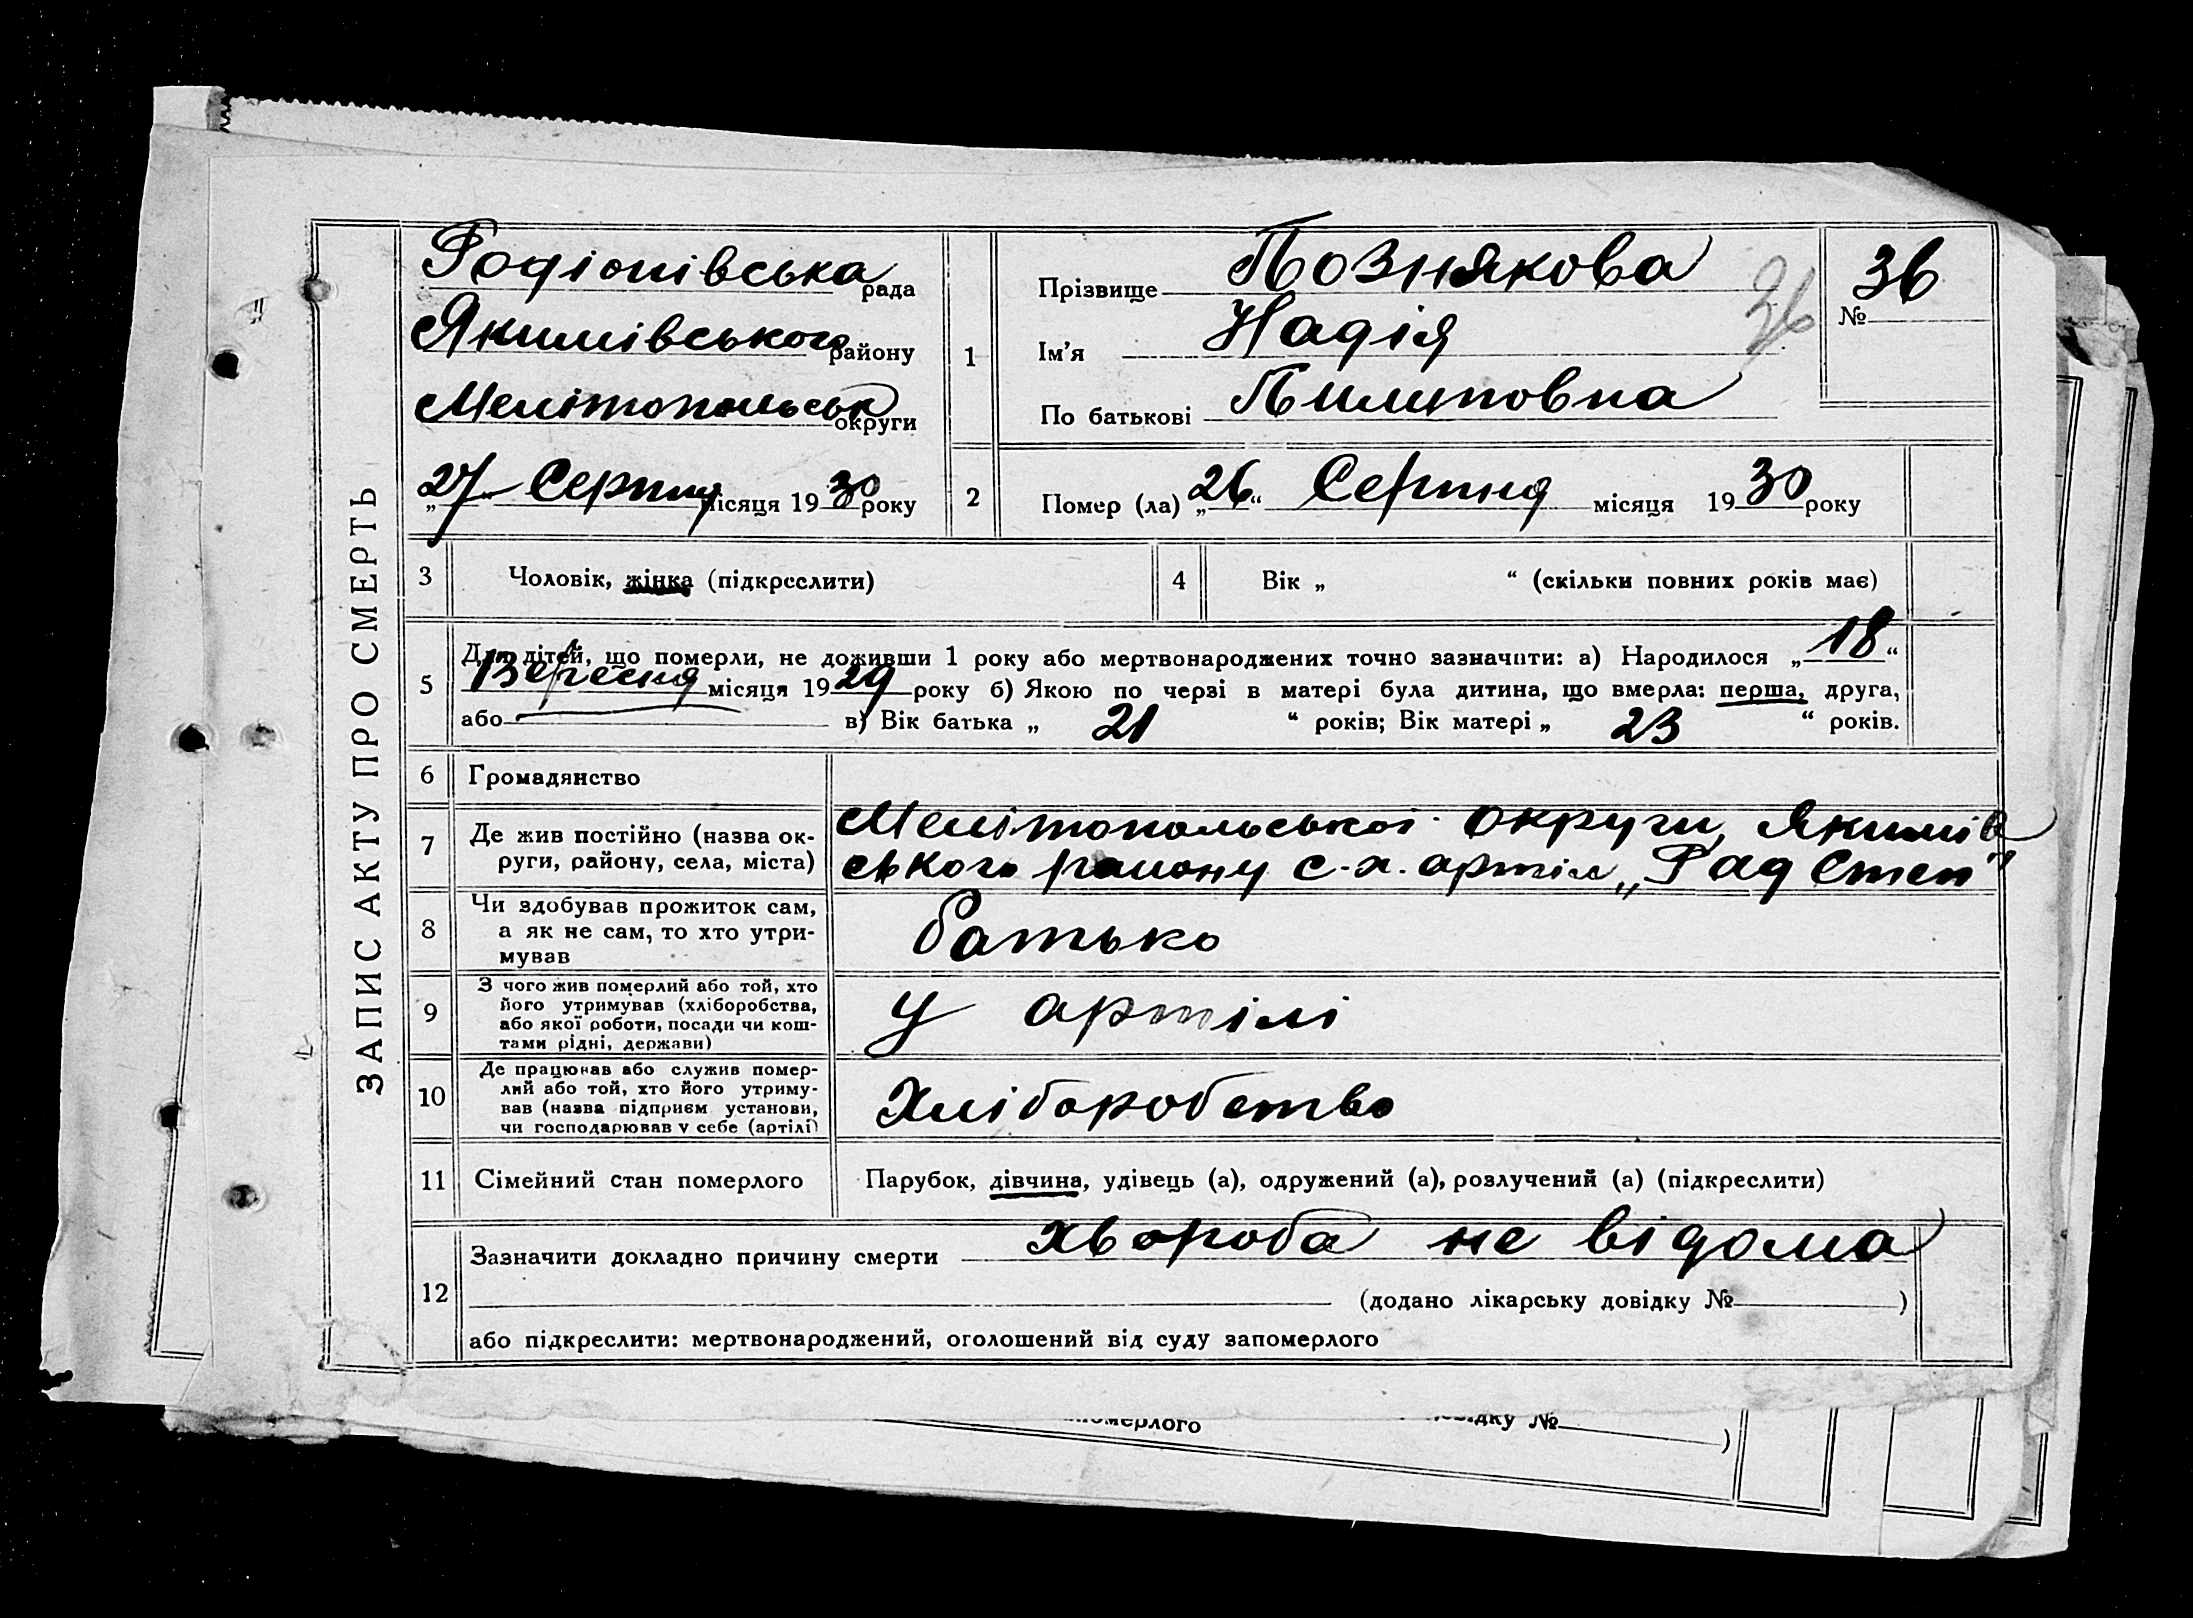 ЗАПИС АКТУ ПРО СМЕРТЬ
Родіонівська рада
Якимівського району
Мелітопольськ округи
„27“ Серпня місяця 1930 року
1
Прізвище Познякова
Ім'я Надія
По батькові Пилиповна
36
№ 36
2
Помер (ла) „26“ Серпня місяця 1930 року
3 Чоловік, жінка (підкреслити)
4 Вік „ “ (скільки повних років має)
5
Для дітей, що померли, не доживши 1 року або мертвонароджених точно зазначити: а) Народилося „18“
Вересня місяця 1929 року б) Якою по черзі в матері була дитина, що вмерла: перша, друга,
або в) Вік батька „ 21 “ років; Вік матері „ 23 “ років.
6 Громадянство
7 Де жив постійно (назва ок-
руги, району, села, міста)
Мелітопольської округи, Якимів
ського району с.-х. артіл „Рад Степ"
8 Чи здобував прожиток сам,
а як не сам, то хто утри-
мував
батько
9 З чого жив померлий або той, хто
його утримував (хліборобства,
або якої роботи, посади чи кош-
тами рідні, держави)
У артілі
10 Де працював або служив помер-
лий або той, хто його утриму-
вав (назва підприєм. установи,
чи господарював у себе (артілі)
Хліборобство
11 Сімейний стан померлого
Парубок, дівчина, удівець (а), одружений (а), розлучений (а) (підкреслити)
12
Зазначити докладно причину смерти хвороба не відома
(додано лікарську довідку № )
або підкреслити: мертвонароджений, оголошений від суду запомерлого
померлого довідку № )